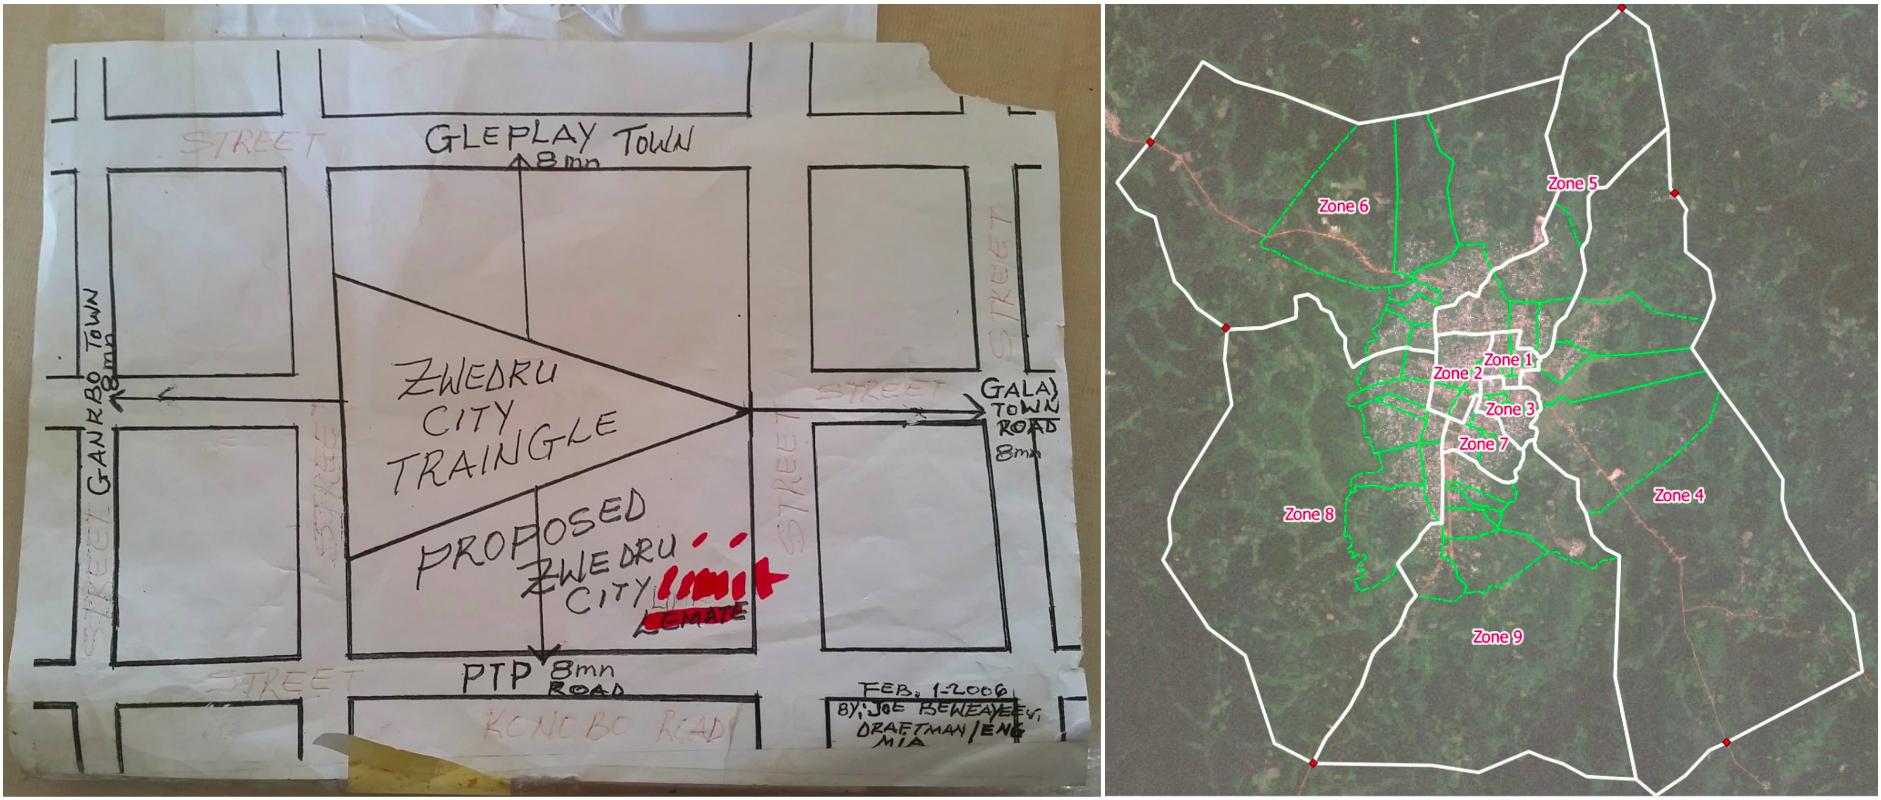 STREET
GLEPLAY TOWN
8mn
STREET
GANRBO TOWN
8mn
ZWEDRU
CITY
TRAINGLE
STREET
GALA)
TOWN
ROAD
8mn
STREET
STREET
STREET
PROPOSED
ZWEDRU
CITY limit
LEMATE
STREET
PTP 8mn
ROAD
KONOBO ROAD
FEB. 1-2006
BY: JOE
DRAFTMAN/ENG
MIA
Zone 5
Zone 6
Zone 1
Zone 2
Zone 3
Zone 7
Zone 4
Zone 8
Zone 9